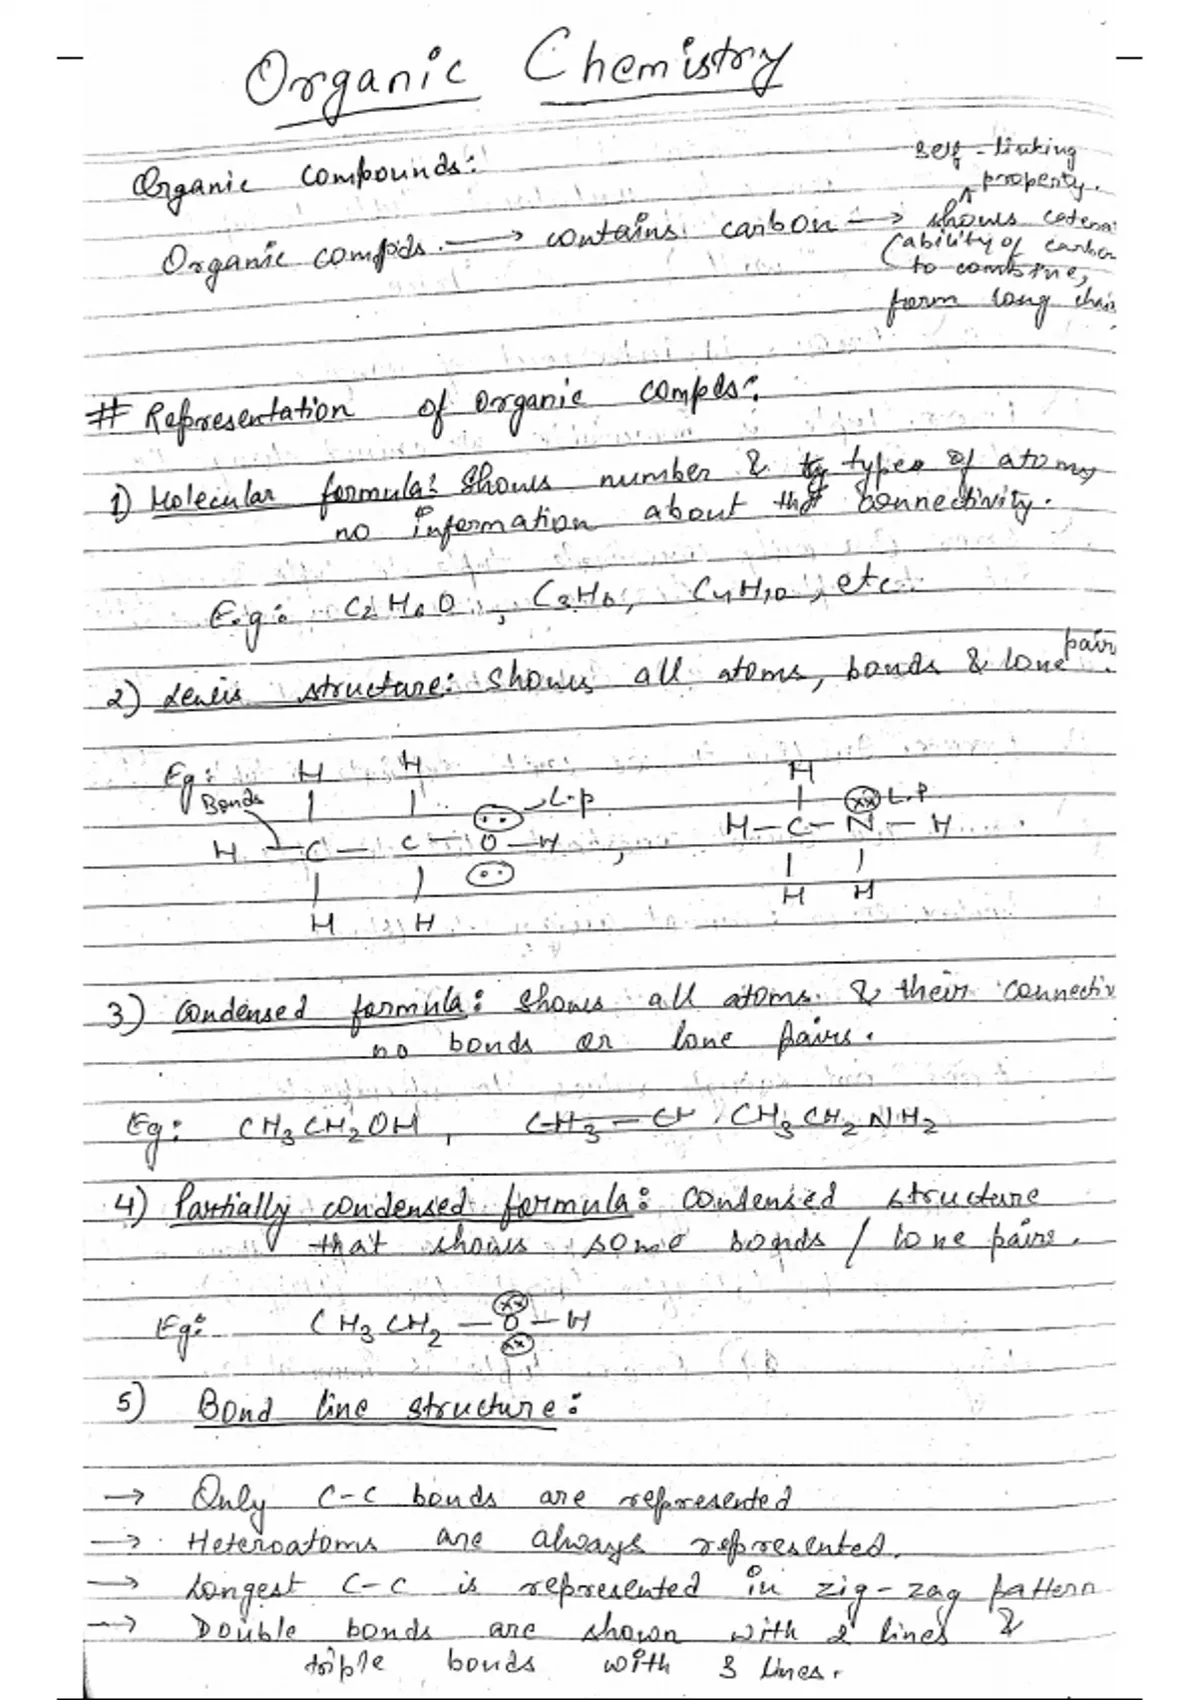 Organic Chemistry
Organic compounds:
self-linking
property.
Organic compds. → contains carbon → shows catena
(ability of carbon
to combine,
form long chain
# Representation of organic compds:
1) Molecular formula: Shows number & types of atoms
no information about that connectivity.
E.g: C2H6O, C3H6, C4H10, etc.
2) Lewis structure: shows all atoms, bonds & lone pair.
Eg: H H H
Bonds L.p L.P
H — C — C — O — H , H — C — N — H
H H H H
3) Condensed formula: shows all atoms & their connectiv
no bonds or lone pairs.
Eg: CH3CH2OH, CH3—CH CH3CH2NH2
4) Partially condensed formula: condensed structure
that shows some bonds / lone pairs.
Eg: CH3CH2 — O — H
5) Bond line structure:
→ Only C-C bonds are represented
→ Heteroatoms are always represented.
→ Longest C-C is represented in zig-zag pattern
→ Double bonds are shown with 2 lines &
triple bonds with 3 lines.